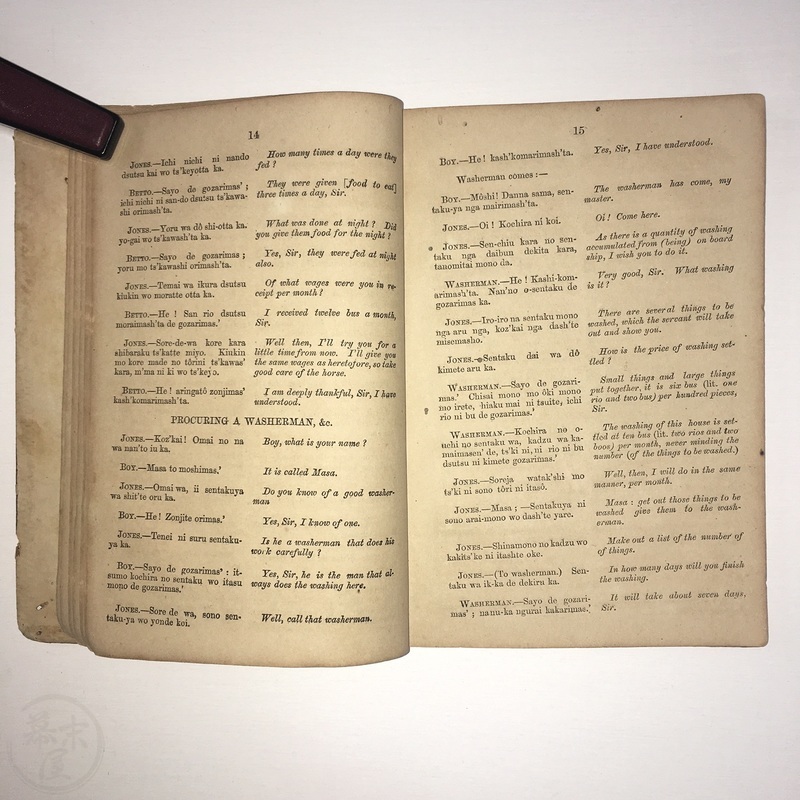 14
JONES.—Ichi nichi ni nando
dsutsu kai wo ts'keyotta ka.
How many times a day were they
fed ?
BETTO.—Sayo de gozarimas' ;
ichi nichi ni san-do dsutsu ts'kawa-
shi orimash'ta.
They were given [food to eat]
three times a day, Sir.
JONES.—Yoru wa dô shi-otta ka.
yo-gai wo ts'kawash'ta ka.
What was done at night ? Did
you give them food for the night ?
BETTO.—Sayo de gozarimas' ;
yoru mo ts'kawashi orimash'ta.
Yes, Sir, they were fed at night
also.
JONES.—Temai wa ikura dsutsu
kiukin wo moratte otta ka.
Of what wages were you in re-
ceipt per month ?
BETTO.—He ! San rio dsutsu
moraimash'ta de gozarimas.'
I received twelve bus a month,
Sir.
JONES.—Sore-de-wa kore kara
shibaraku ts'katte miyo. Kiukin
mo kore made no tôrini ts'kawas'
kara, m'ma ni ki wo ts'keyo.
Well then, I'll try you for a
little time from now. I'll give you
the same wages as heretofore, so take
good care of the horse.
BETTO.—He! aringatô zonjimas'
kash'komarimash'ta.
I am deeply thankful, Sir, I have
understood.
PROCURING A WASHERMAN, &c.
JONES.—Koz'kai! Omai no na
wa nan'to iu ka.
Boy, what is your name ?
BOY.—Masa to moshimas.'
It is called Masa.
JONES.—Omai wa, ii sentakuya
wa shit'te oru ka.
Do you know of a good washer-
man
BOY.—He! Zonjite orimas.'
Yes, Sir, I know of one.
JONES.—Tenei ni suru sentaku-
ya ka.
Is he a washerman that does his
work carefully ?
BOY.—Sayo de gozarimas' : it-
sumo kochira no sentaku wo itasu
mono de gozarimas.'
Yes, Sir, he is the man that al-
ways does the washing here.
JONES.—Sore de wa, sono sen-
taku-ya wo yonde koi.
Well, call that washerman.
15
BOY.—He! kash'komarimash'ta.
Yes, Sir, I have understood.
Washerman comes :—
BOY.—Môshi! Danna sama, sen-
taku-ya nga mairimash'ta.
The washerman has come, my
master.
JONES.—Oi! Kochira ni koi.
Oi! Come here.
JONES.—Sen-chiu kara no sen-
taku nga daibun dekita kara,
tanomitai mono da.
As there is a quantity of washing
accumulated from (being) on board
ship, I wish you to do it.
WASHERMAN.—He! Kashi-kom-
arimash'ta. Nan'no o-sentaku de
gozarimas ka.
Very good, Sir. What washing
is it?
JONES.—Iro-iro na sentaku mono
nga aru nga, koz'kai nga dash'te
misemasho.
There are several things to be
washed, which the servant will take
out and show you.
JONES.—Sentaku dai wa dô
kimete aru ka.
How is the price of washing set-
tled ?
WASHERMAN.—Sayo de gozari-
mas.' Chisai mono mo ôki mono
mo irete, hiaku mai ni tsuite, ichi
rio ni bu de gozarimas.'
Small things and large things
put together, it is six bus (lit. one
rio and two bus) per hundred pieces,
Sir.
WASHERMAN.—Kochira no o-
uchi no sentaku wa, kadzu wa ka-
maimasen' de, ts'ki ni, ni rio ni bu
dsutsu ni kimete gozarimas.'
The washing of this house is set-
tled at ten bus (lit. two rios and two
boos) per month, never minding the
number (of the things to be washed.)
JONES.—Soreja watak'shi mo
ts'ki ni sono tôri ni itasô.
Well, then, I will do in the same
manner, per month.
JONES.—Masa ; —Sentakuya ni
sono arai-mono wo dash'te yare.
Masa : get out those things to be
washed give them to the wash-
erman.
JONES.—Shinamono no kadzu wo
kakits'ke ni itashte oke.
Make out a list of the number of
of things.
JONES.—(To washerman.) Sen-
taku wa ik-ka de dekiru ka.
In how many days will you finish
the washing.
WASHERMAN.—Sayo de gozari-
mas' ; nanu-ka ngurai kakarimas.'
It will take about seven days,
Sir.